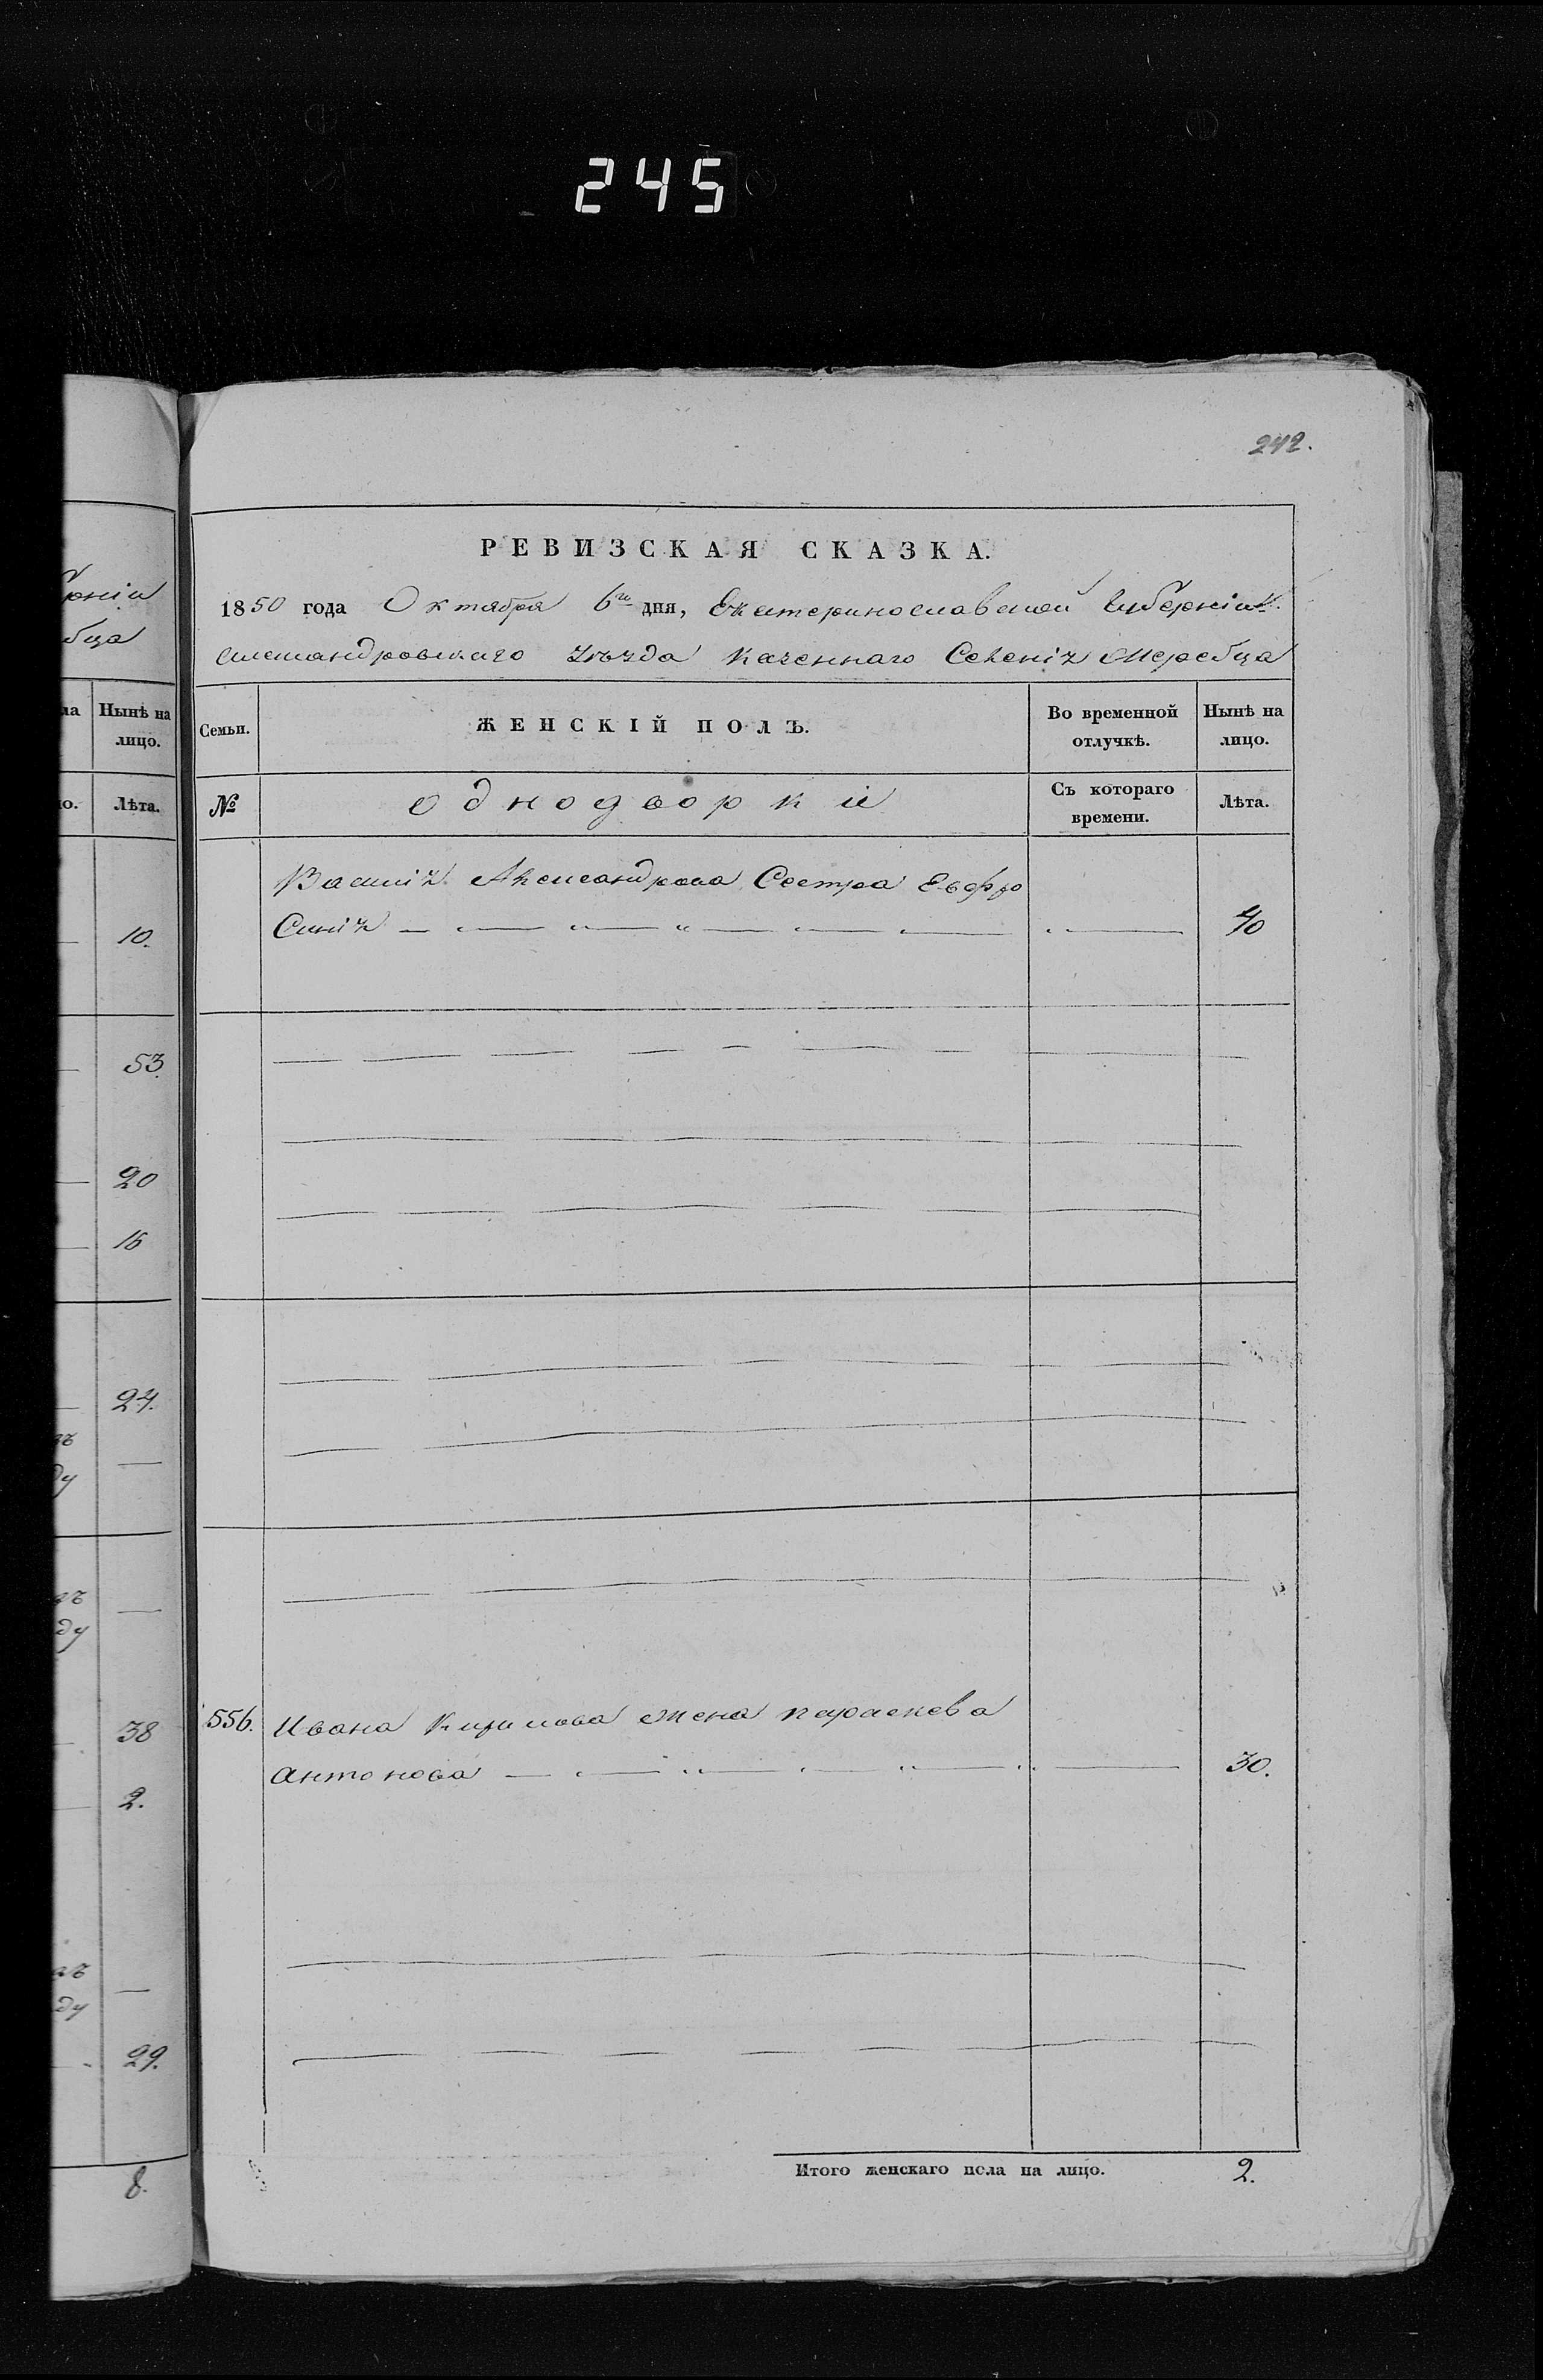 245
242.
РЕВИЗСКАЯ СКАЗКА.
1850 года Октября 6го дня, Екатеринославской Губерніи
Александровскаго уѣзда казеннаго Селенія Жеребца
Семьи.
ЖЕНСКІЙ ПОЛЪ.
Во временной отлучкѣ.
Нынѣ на лицо.
№
Однодворки
Съ котораго времени.
Лѣта.
Василія Александрова Сестра Евфро
Синія 40
556. Ивана Кирилова жена параскева
антонова 30.
Итого женскаго пола на лицо. 2.
рніи
бца
ла
Нынѣ на лицо.
ло.
Лѣта.
10.
53.
20
16
24.
ду
ду
38
2.
ду
29.
8.